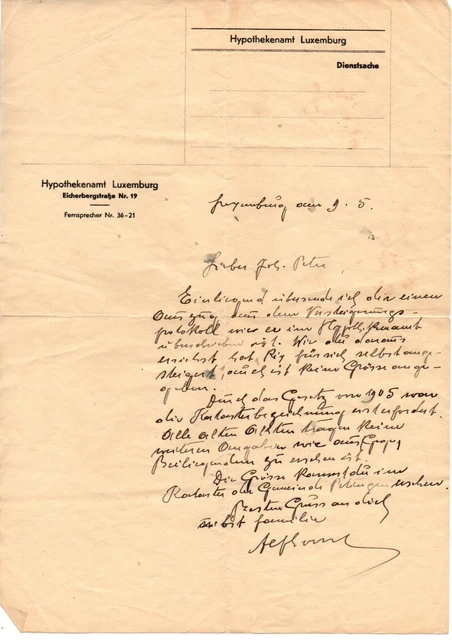 Hypothekenamt Luxemburg
Dienstsache
Hypothekenamt Luxemburg
Eicherbergstraße Nr. 19
Fernsprecher Nr. 36-21
Luxemburg am 9. 5.
Lieber Joh. Peter,
Einliegend übersende ich dir einen
Auszug aus dem Versteigerungs-
protokoll wie er im Hypothekenamt
überschrieben ist. Wie du daraus
ersiehst hat für sich selbst ange-
steigert, auch ist keine Grösse ange-
geben.
Durch das Gesetz von 1905 war
die Katasterbezeichnung erst erfordert.
Alle alten Akten tragen keine
weiteren Angaben wie aus
Beiliegendem zu ersehen ist.
Die Grösse kannst du im
Kataster der Gemeinde Petingen ersehen.
Besten Gruss an dich
nebst Familie